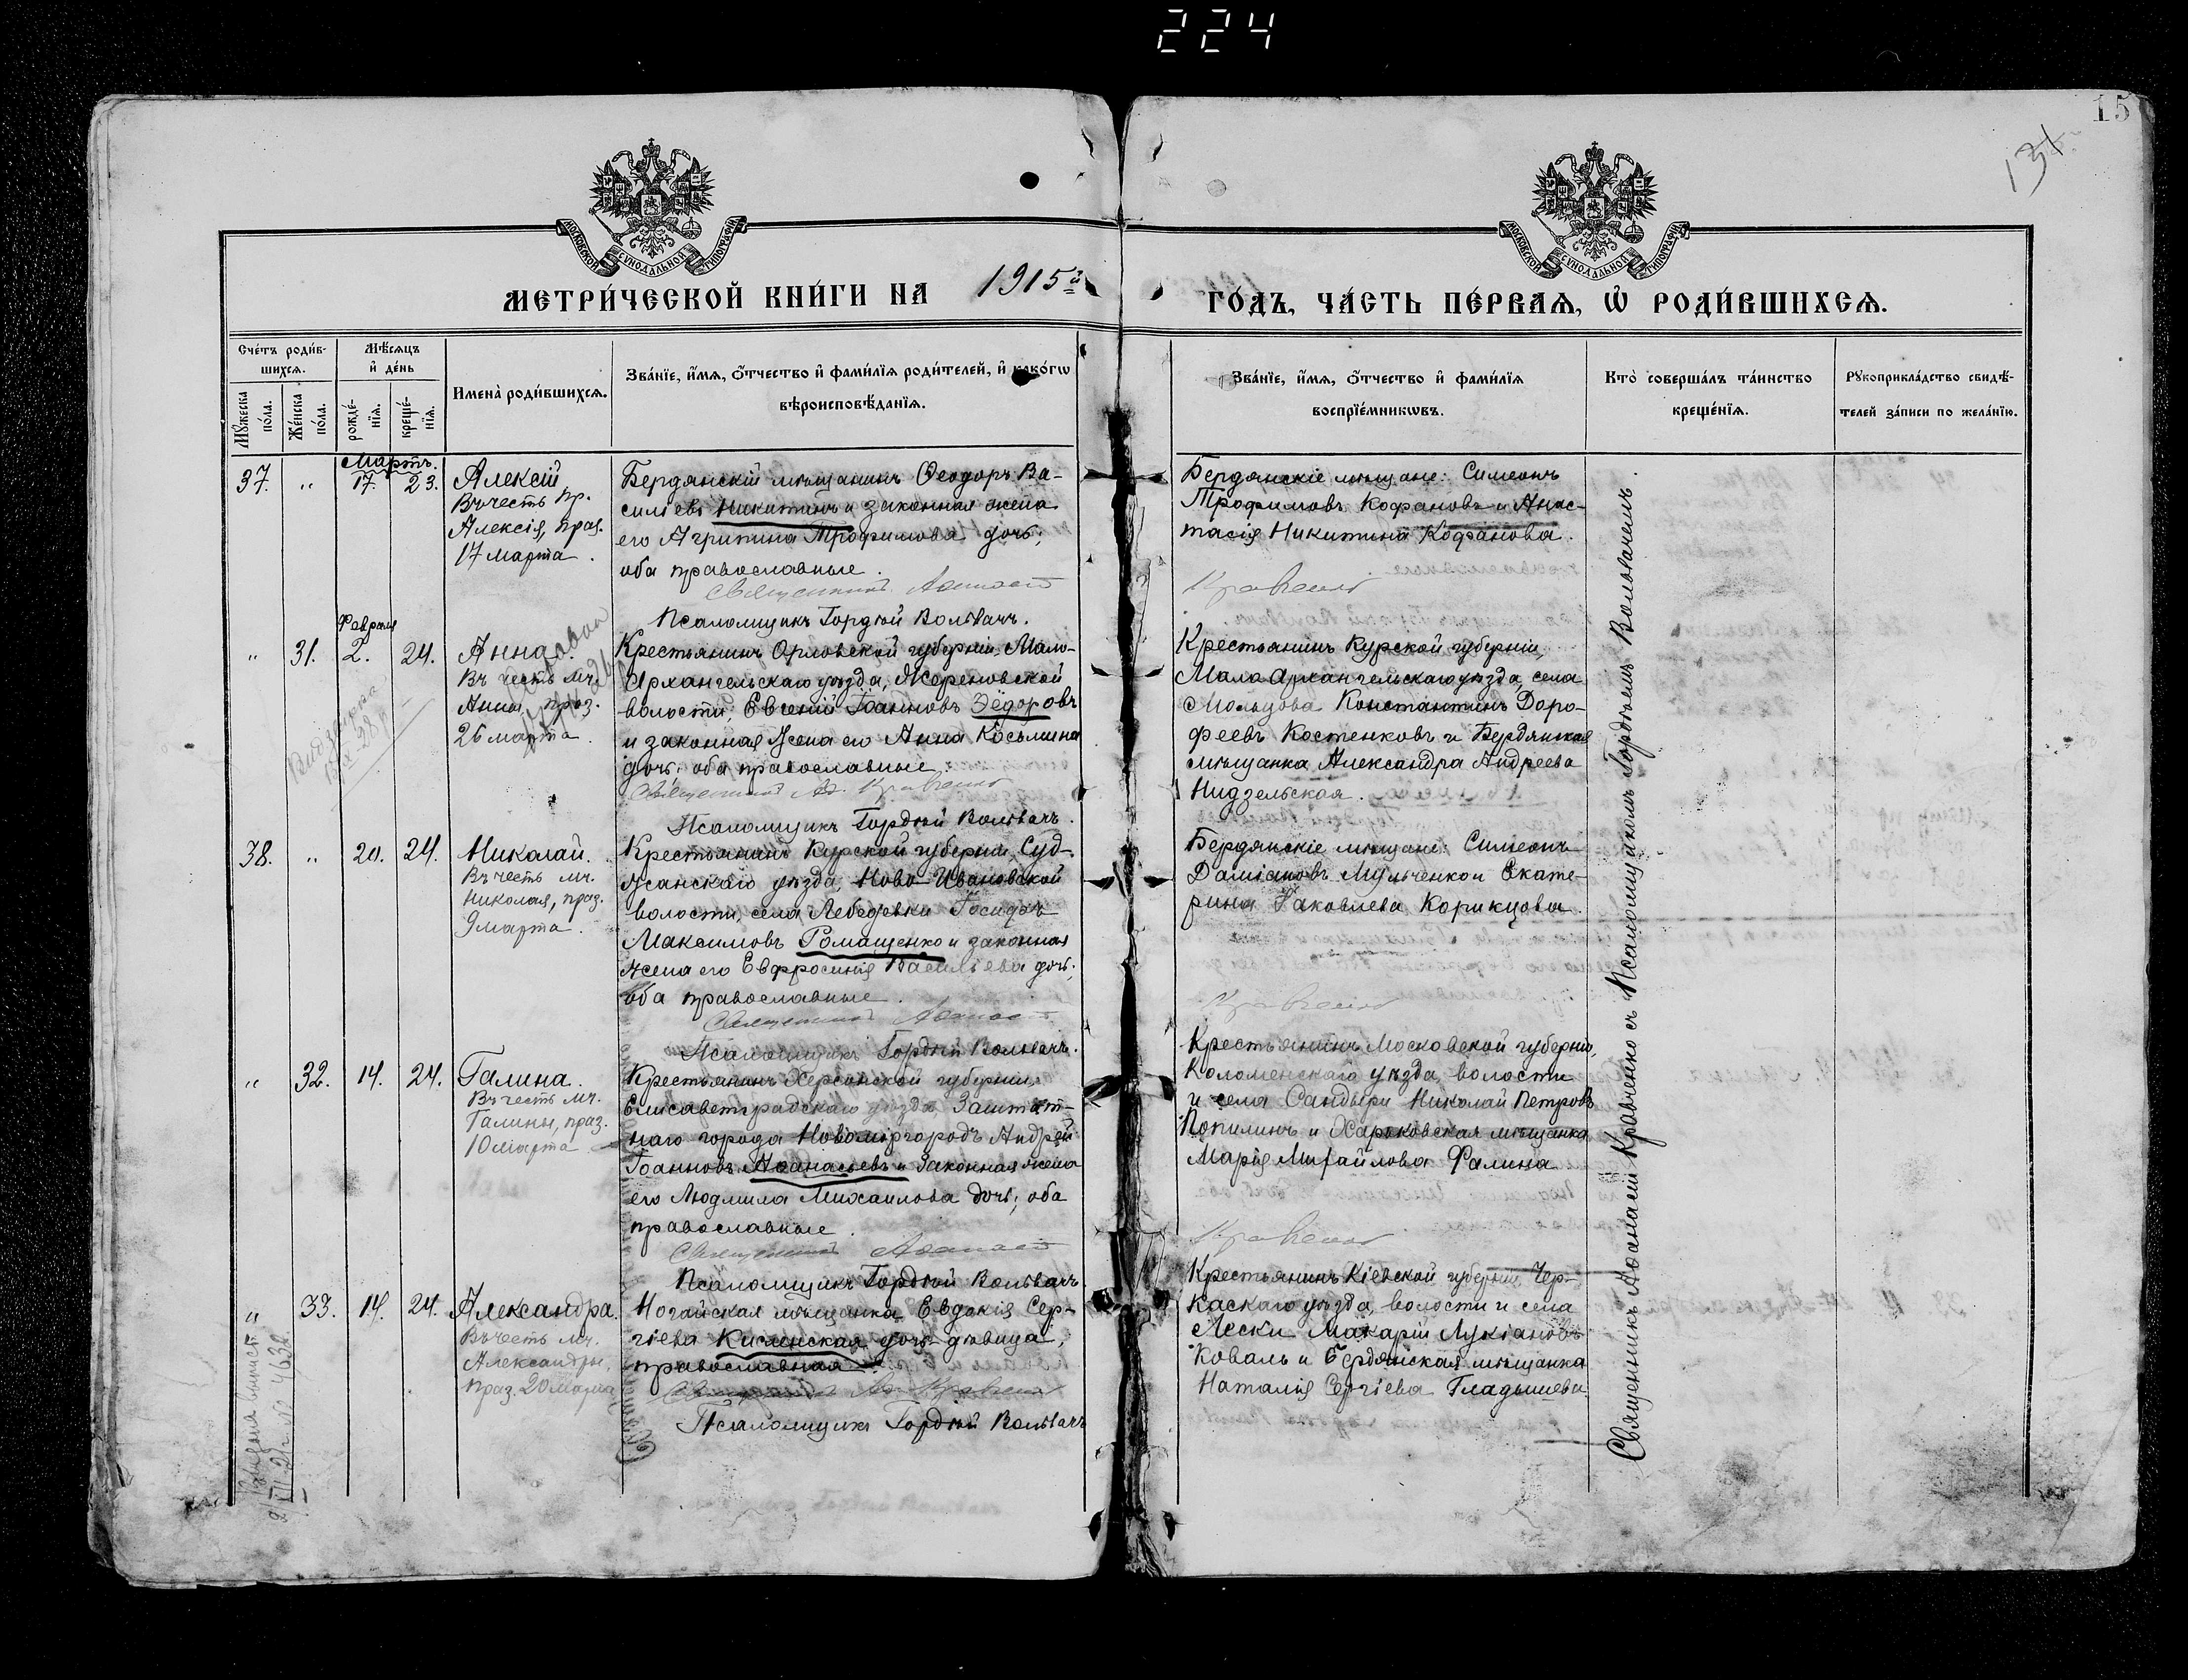 224
15
131
МОСКОВСКОЙ СѴНОДАЛЬНОЙ ТИПОГРАФІИ
МОСКОВСКОЙ СѴНОДАЛЬНОЙ ТИПОГРАФІИ
МЕТРИ́ЧЕСКОЙ КНИ́ГИ НА 1915й
ГО́ДЪ, ЧА́СТЬ ПЕ́РВАѦ, Ѡ҆ РОДИ́ВШИХСѦ.
Сче́тъ роди́в-
шихсѧ.
Мꙋ́жеска по́ла.
Же́нска по́ла.
Мѣ́сѧцъ
и҆ де́нь
рожде́-
нїѧ.
креще́-
нїѧ.
И҆мена̀ роди́вшихсѧ.
Зва́нїе, и҆́мѧ, ѻ҆́тчество и҆ фами́лїѧ роди́телей, и҆ како́гѡ
вѣроисповѣ́данїѧ.
Зва́нїе, и҆́мѧ, ѻ҆́тчество и҆ фами́лїѧ
воспрїе́мникѡвъ.
Кто̀ соверша́лъ та́инство
креще́нїѧ.
Рꙋкоприкла́дство свидѣ́-
телей за́писи по жела́нїю.
Мартъ.
37. " 17. 23. Алексій
Въ честь пр.
Алексія, праз.
17 марта.
Бердянскій мѣщанинъ Ѳеодоръ Ва-
силіевъ Никитинъ и законная жена
его Агрипина Трофимова дочь;
оба православные.
Священникъ Аѳанасій
Псаломщикъ Гордѣй Волвачъ.
Бердянскіе мѣщане: Симеонъ
Трофимовъ Кофановъ и Анас-
тасія Никитина Кофанова.
Кравченко
Февраля
" 31. 2. 24. Анна.
Въ честь мч.
Анны, праз.
26 марта.
Крестьянинъ Орловской губерніи, Мало-
Архангельскаго уѣзда,
волости, Евгеній Іоанновъ Ѳедоровъ
и законная жена его Анна Косьмина
дочь; оба православные.
Священникъ Аѳ. Кравченко
Псаломщикъ Гордѣй Волвачъ.
Крестьянинъ Курской губерніи,
Мало Архангельскаго уѣзда, села
Константинъ Доро-
феевъ Костенковъ и Бердянская
мѣщанка Александра Андреева
Нидзельская.
38. " 20. 24. Николай.
Въ честь мч.
Николая, праз.
9 марта.
Крестьянинъ Курской губерніи, Суд-
жанскаго уѣзда, Ново-Ивановской
волости, села Лебедевки Іосифъ
Максимовъ Ромащенко и законная
жена его Евфросинія Васильева дочь;
оба православные.
Священникъ Аѳанасій
Псаломщикъ Гордѣй Волвачъ.
Бердянскіе мѣщане: Симеонъ
Даміановъ Мульченко и Екате-
рина Іаковлева Корикцова.
Кравченко
" 32. 14. 24. Галина.
Въ честь мч.
Галины, праз.
10 марта
Крестьянинъ Херсонской губерніи,
Елисаветградскаго уѣзда Заштат-
наго города Новомиргородъ Андрей
Іоанновъ Аѳанасьевъ и законная жена
его Людмила Михаилова дочь; оба
православные.
Священникъ Аѳанасій
Псаломщикъ Гордѣй Волвачъ.
Крестьянинъ Московской губерніи,
Коломенскаго уѣзда, волости
и села Сандыри Николай Петровъ
Попилинъ и Харьковская мѣщанка
Марія Михайлова Фалина
Кравченко
" 33. 14. 24. Александра.
Въ честь мч.
Александры,
праз. 20 марта
Ногайская мѣщанка Евдокія Сер-
гіева Кисленская дочь дѣвица,
православная.
Священникъ Аѳ. Кравченко
Псаломщикъ Гордѣй Волвачъ
Крестьянинъ Кіевской губерніи, Чер-
каскаго уѣзда, волости и села
Лески Макарій Лукіановъ
Коваль и Бердянская мѣщанка
Наталія Сергіева Гладышева.
Священникъ Аѳанасій Кравченко съ Псаломщикомъ Гордѣемъ Волвачемъ.